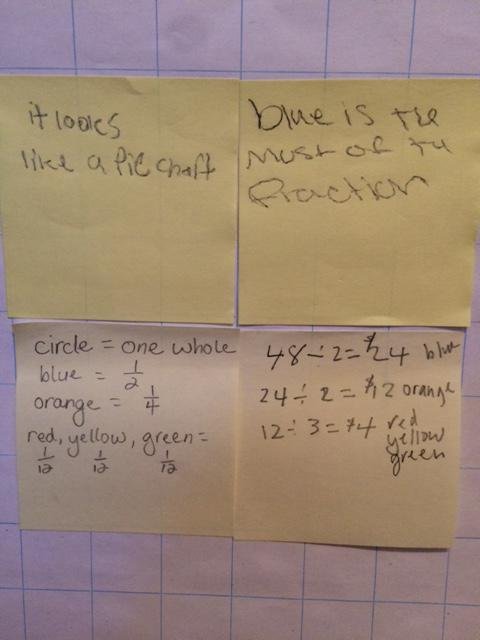 it looks
like a Pie chart
blue is the
most of the
fraction
circle = one whole
blue = 1/2
orange = 1/4
red, yellow, green =
1/12 1/12 1/12
48 ÷ 2 = $24 blue
24 ÷ 2 = $12 orange
12 ÷ 3 = $4 red
yellow
green